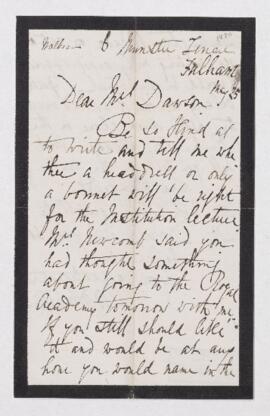 6 Munster Terrace
Fulham
May 25
Dear Mrs Dawson
Be so kind as
to write and tell me whe
ther a headdress or only
a bonnet will be right
for the Institution lecture.
Mrs Newcomb said you
had thought something
about going to the Royal
Academy tomorrow with me.
If you still should like
it and would be at any
hour you would name in the